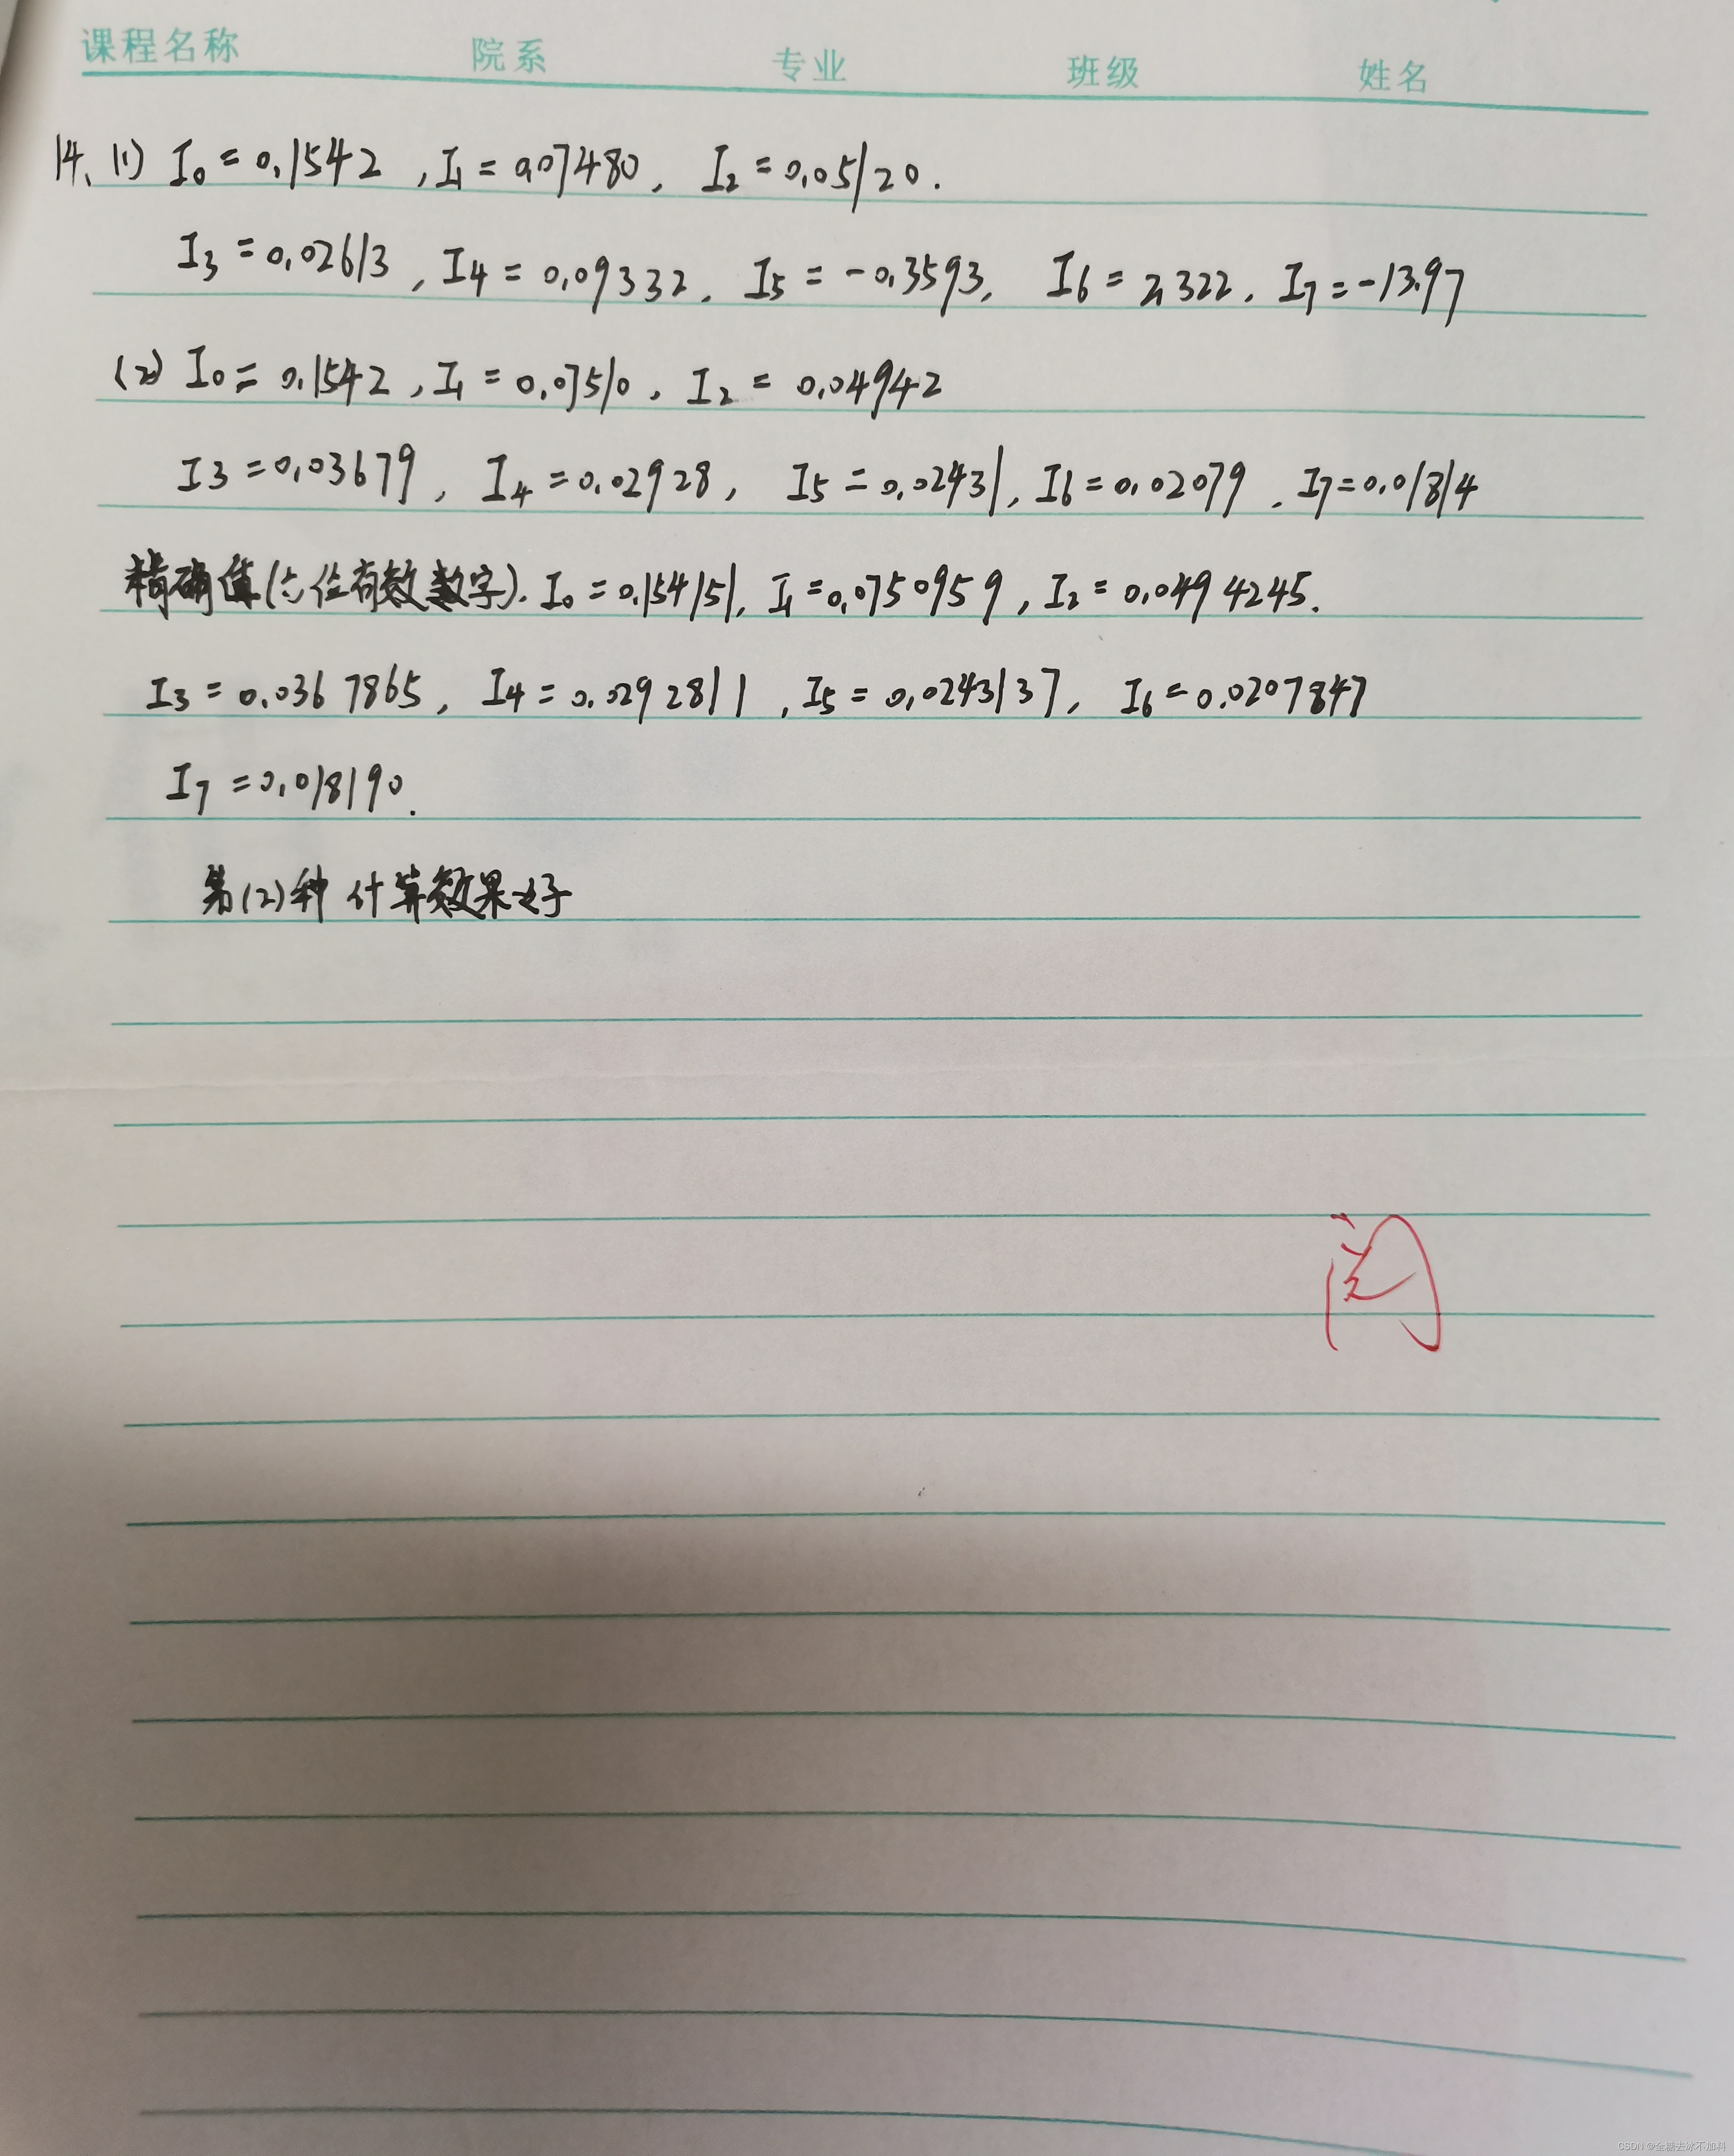 课程名称 院系 专业 班级 姓名
14、(1) I₀=0.1542, I₁=0.07480, I₂=0.05120.
I₃=0.02613, I₄=0.09332, I₅=-0.3593, I₆=2.322, I₇=-13.97
(2) I₀=0.1542, I₁=0.07510, I₂=0.04942
I₃=0.03679, I₄=0.02928, I₅=0.02431, I₆=0.02079, I₇=0.01814
精确值(六位有效数字). I₀=0.154151, I₁=0.0750959, I₂=0.0494245.
I₃=0.0367865, I₄=0.0292811, I₅=0.0243137, I₆=0.0207847
I₇=0.018190.
第(2)种计算效果好
阅
CSDN @全糖去冰不加料